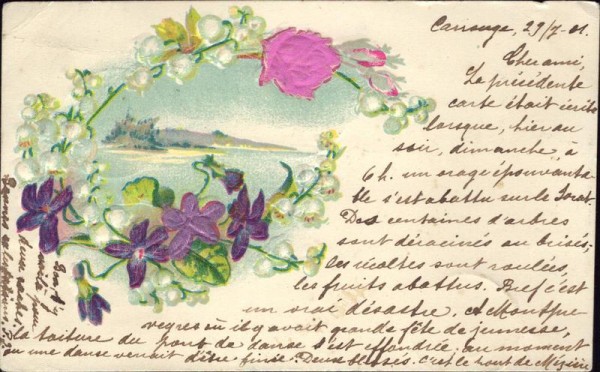 Carrouge, 29/7-01.
Cher ami,
La précédente
carte était écrite
lorsque, hier au
soir, dimanche, à
6 h. un orage épouvanta-
ble s'est abattu sur le Jorat.
Des centaines d'arbres
sont déracinés ou brisés;
les récoltes sont roulées,
les fruits abattus. Bref c'est
un vrai désastre. A Montpre-
veyres où il y avait grande fête de jeunesse,
la toiture du pont de danse s'est effondrée au moment
où une danse venait d'être finie. Deux blessés. C'est le haut de Mézières